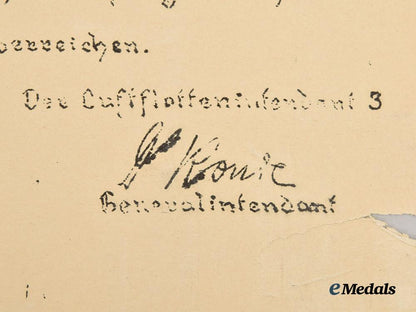 überreichen.
Der Luftflottenintendant 3
Generalintendant
eMedals